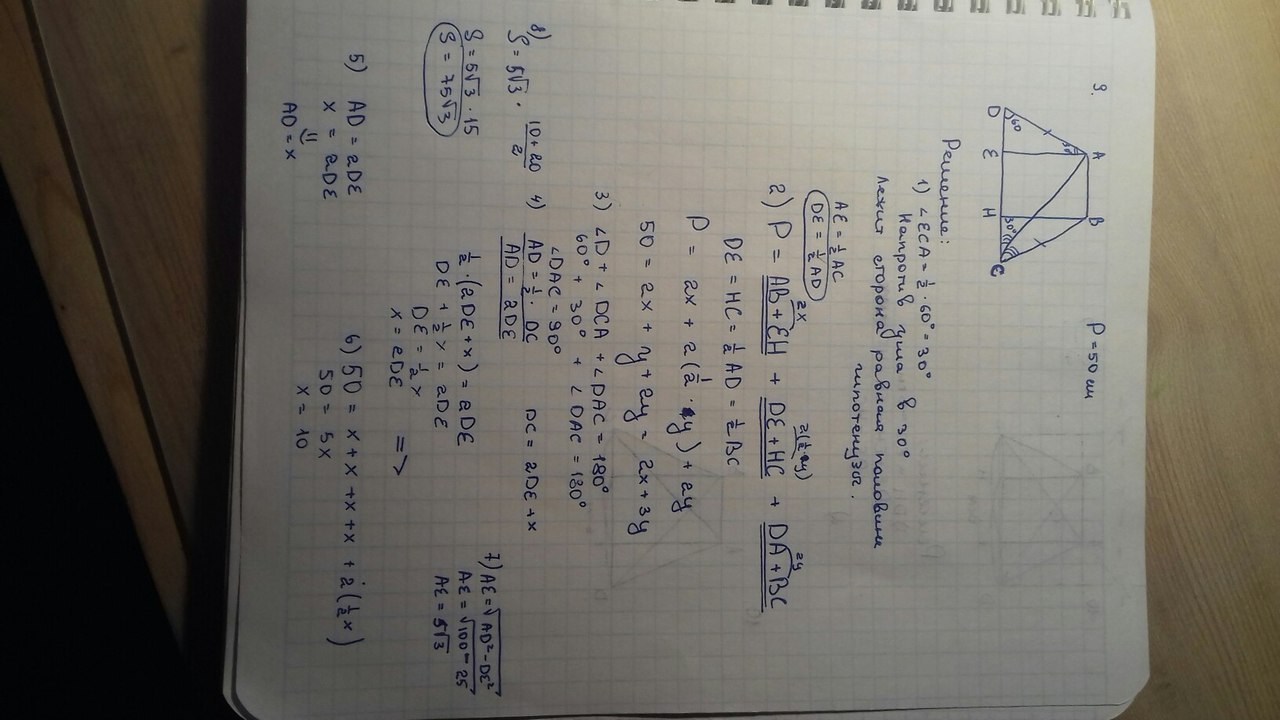 9.
P=50 см
A
B
D
E
H
C
60
30°
30°
Решение:
1) ∠ECA = ½ · 60° = 30°
Напротив угла в 30°
лежит сторона равная половине
гипотенузы.
AE = ½ AC
DE = ½ AD
2) P = AB + EH + DE + HC + DA + BC
2x
2(½·y)
2y
DE = HC = ½ AD = ½ BC
P = 2x + 2(½ · y) + 2y
50 = 2x + y + 2y = 2x + 3y
3) ∠D + ∠DCA + ∠DAC = 180°
60° + 30° + ∠DAC = 180°
∠DAC = 90°
4) AD = ½ · DC
DC = 2DE + x
AD = 2DE
½ · (2DE + x) = 2DE
DE + ½x = 2DE
DE = ½x
x = 2DE
=>
5) AD = 2DE
x = 2DE
⇓
AD = x
6) 50 = x + x + x + x + 2(½x)
50 = 5x
x = 10
7) AE = √AD² − DE²
AE = √100 − 25
AE = 5√3
8) S = 5√3 · 10+20/2
S = 5√3 · 15
S = 75√3